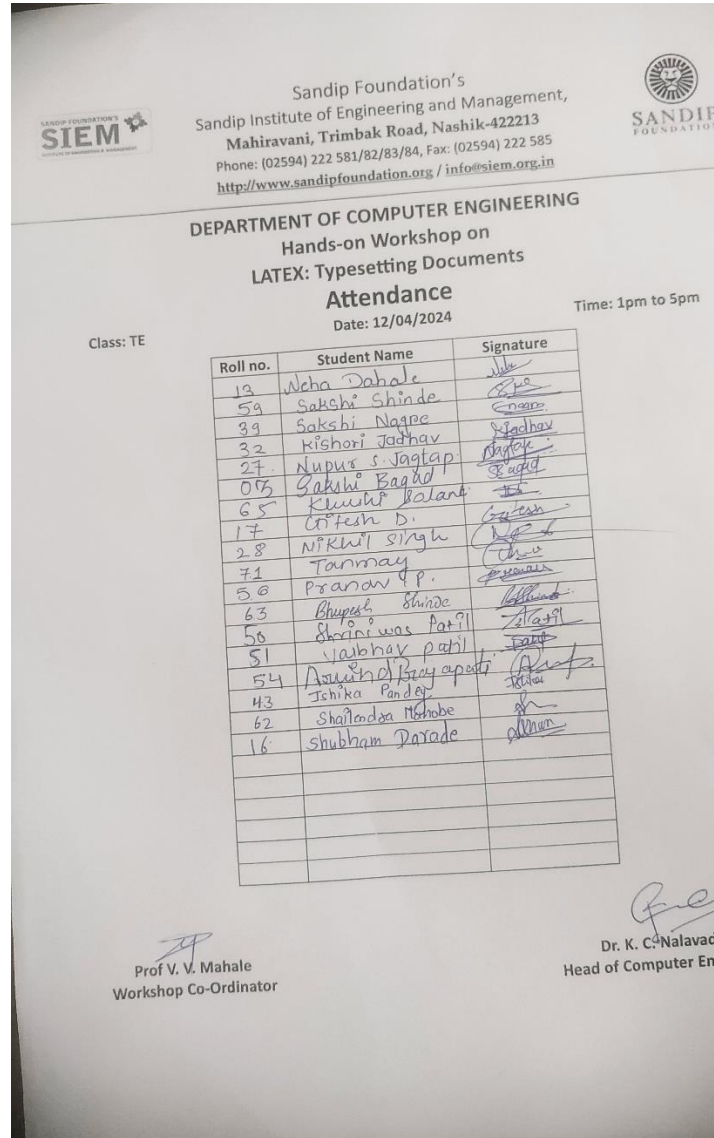 SANDIP FOUNDATION'S
SIEM
SANDIP
FOUNDATION
Sandip Foundation's
Sandip Institute of Engineering and Management,
Mahiravani, Trimbak Road, Nashik-422213
Phone: (02594) 222 581/82/83/84, Fax: (02594) 222 585
http://www.sandipfoundation.org / info@siem.org.in
DEPARTMENT OF COMPUTER ENGINEERING
Hands-on Workshop on
LATEX: Typesetting Documents
Attendance
Class: TE Date: 12/04/2024 Time: 1pm to 5pm
Roll no. Student Name Signature
13 Neha Dahale
59 Sakshi Shinde
39 Sakshi Nagre
32 Kishori Jadhav Jadhav
27 Nupur S. Jagtap
03 Sakshi Bagad Bagad
65 Khushi
17 Gitesh D. Gitesh
28 Nikhil Singh
71 Tanmay
56 Pranav P.
63 Bhupesh Shinde
50 Shriniwas Patil Patil
51 Vaibhav patil
54 Arvind
43 Ishika Pandey
62 Shailendra
16 Shubham Darade
Prof V. V. Mahale
Workshop Co-Ordinator
Dr. K. C. Nalavad
Head of Computer En